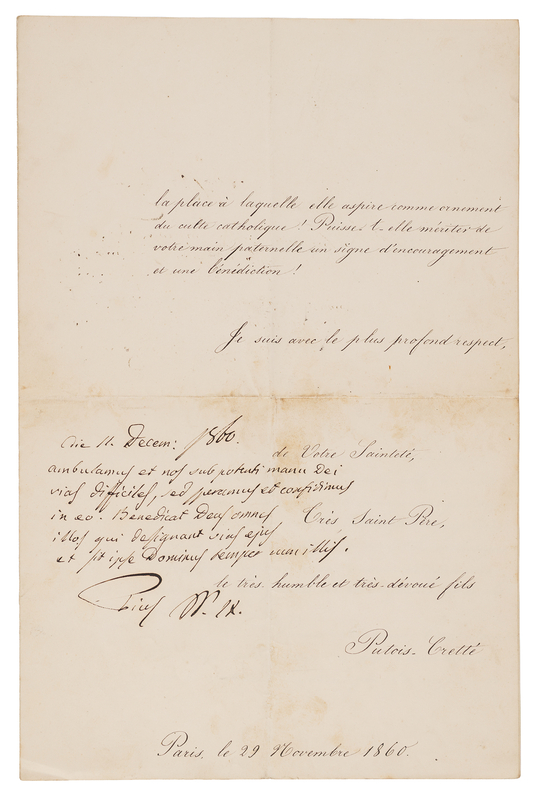 la place à laquelle elle aspire comme ornement
du culte catholique! Puisse-t-elle mériter de
votre main paternelle un signe d'encouragement
et une bénédiction!
Je suis avec le plus profond respect,
Die 11. Decem: 1860.
de Votre Sainteté,
ambulamus et nos sub potenti manu Dei
vias difficiles, sed speramus et confidimus
in eo. Benedicat Deus omnes
Très Saint Père,
illos qui designant vias ejus
et sit ipse Dominus semper cum illis.
le très-humble et très-dévoué fils
Pius PP. IX.
Putois-Cretté
Paris, le 29 Novembre 1860.